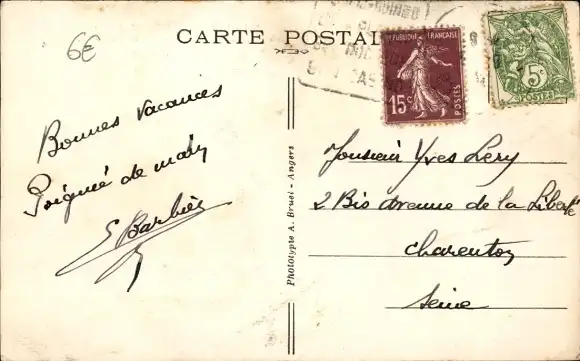 6€
CARTE POSTALE
REPUBLIQUE FRANÇAISE
15c
POSTES
5c
POSTES
Bonnes vacances
Poignée de main
E Barbier
Phototypie A. Bruel - Angers
Monsieur Yves Lery
2 Bis Avenue de la Liberté
Charenton
Seine